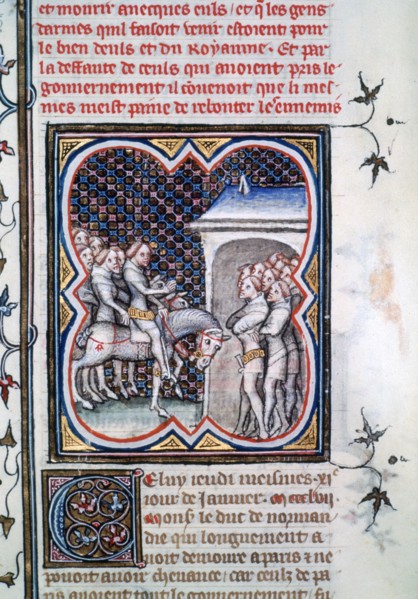 et mourir avecques euls / et q̃ les gens
darmes quil faisoit venir estoient pour
le bien deuls et du Royaume · Et par
la deffaute de ceuls qui avoient pris le
gouvernement il cõvenoit que li mes
mes meist paine de rebouter les ennemis
Celuy ieudi meismes · xi·
iour de Janvier · m ccc lvii ·
mons̃ le duc de norman
die qui longuement a
voit demoure a paris ⁊ ne
povoit avoir chevance / car ceulz de pa
ris avoient tout le gouvernement / fu